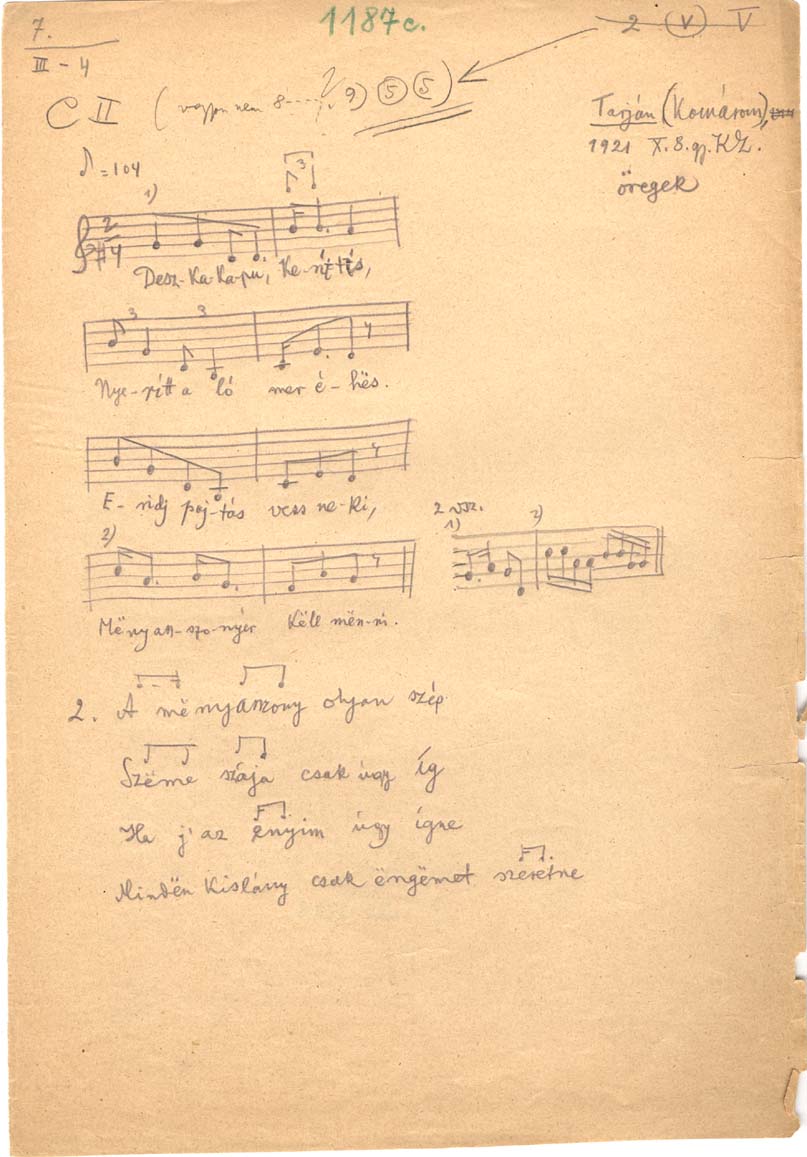 7.
III - 4
1187c.
2 (V) V
C II ( vagyon nem 8 ..... 9) (5) (5)
Tarján (Komárom),
1921 X. 8. gy. KZ.
öregek
♪ = 104
1) 3
2/4
Desz-ka-ka-pu, ke-rí-tís,
3 3
Nye-rítt a ló mer é-hës.
E-ridj paj-tás vess ne-ki,
2 vsz.
1) 2)
2)
Mënyasz-szo-nyér këll mën-ni.
2. A mënyasszony olyan szép
Szëme szája csak úgy íg
Ha j'az ényim úgy ígne
Mindën kislány csak ëngëmet szeretne